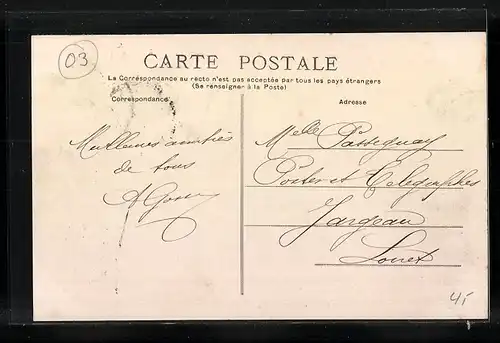 03
CARTE POSTALE
La Correspondance au recto n'est pas acceptée par tous les pays étrangers
(Se renseigner à la Poste)
Correspondance
Adresse
Meilleures amitiés
de tous
Melle Passeguay
Postes et Télégraphes
Jargeau
Loiret